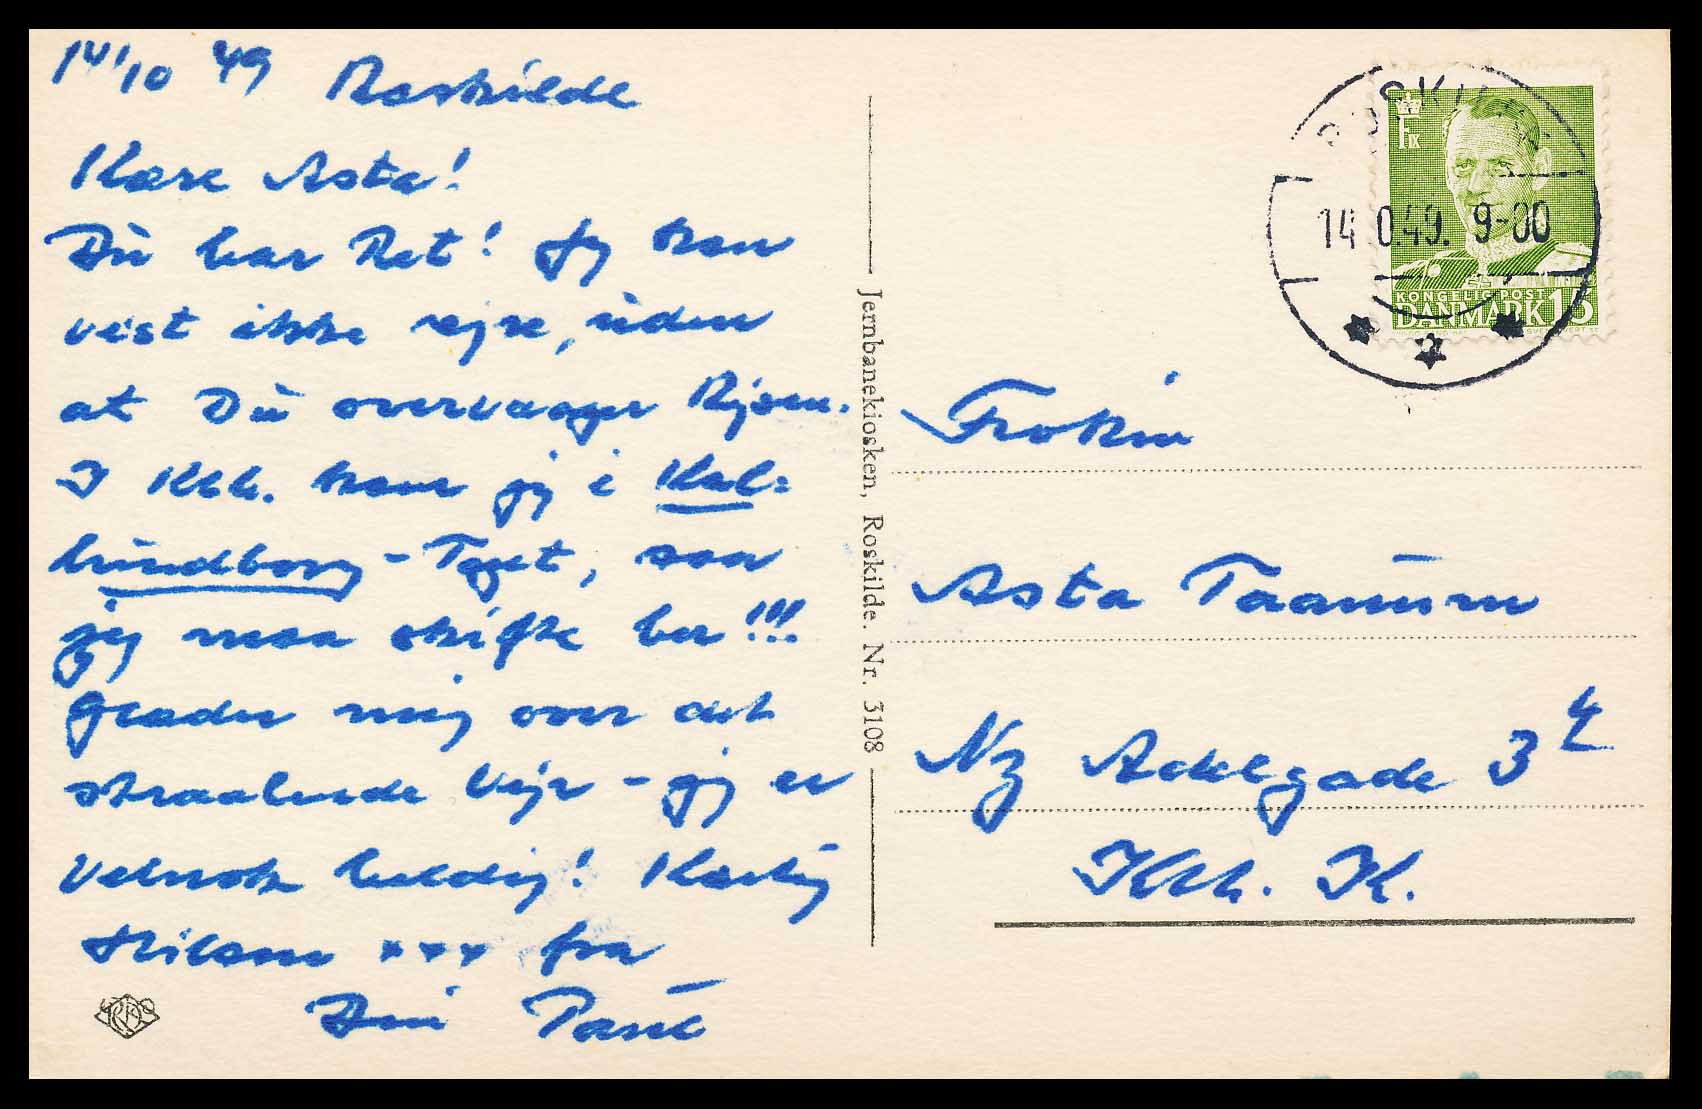 14/10 49 Roskilde
Kære Asta!
Du har Ret! Jeg kan
vist ikke rejse, uden
at Du overvaager Rejsen.
I Kbh. kom jeg i Kal=
lundborg-Toget, saa
jeg maa skifte her!!!
glæder mig over det
straalende Vejr - jeg er
Velnok heldig! Kærlig
Hilsen *** fra
Din Paul
Jernbanekiosken, Roskilde. Nr. 3108
ROSKILDE
14 0.49. 9-00
F IX
KONGELIG POST
DANMARK 15
Frøkin
Asta Taanum
Ny Adelgade 3 4
Kbh. K.